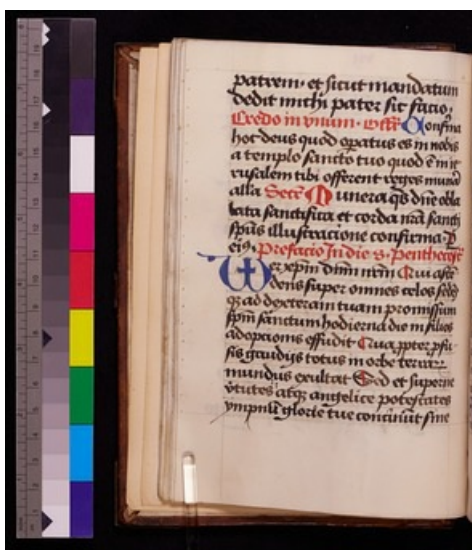 patrem · et sicut mandatum
dedit michi pater sic facio ·
Credo in vnum · Offm̄ Confirma
hoc deus quod opatus es in nobis
a templo sancto tuo quod ē in ie
rusalem tibi offerent reges munera
alla Secrē Munera qs dn̄e obla
tata sanctifica et corda nr̄a sancti
spūs illustracione confirma · P
eiꝰ · Prefacio In die s · Penthecost̄
Per xp̄m dn̄m nr̄m Qui ascē
dens super omnes celos sedēsꝗ
ꝗ ad dexteram tuam promissum
sp̄m sanctum hodierna die in filios
adopcionis effudit Qua ꝓpter ꝓfu
sis gaudijs totus in orbe terrar
mundus exultat Sed et superne
v̄tutes atꝗ angelice potestates
ympnū glorie tue concinūt sine